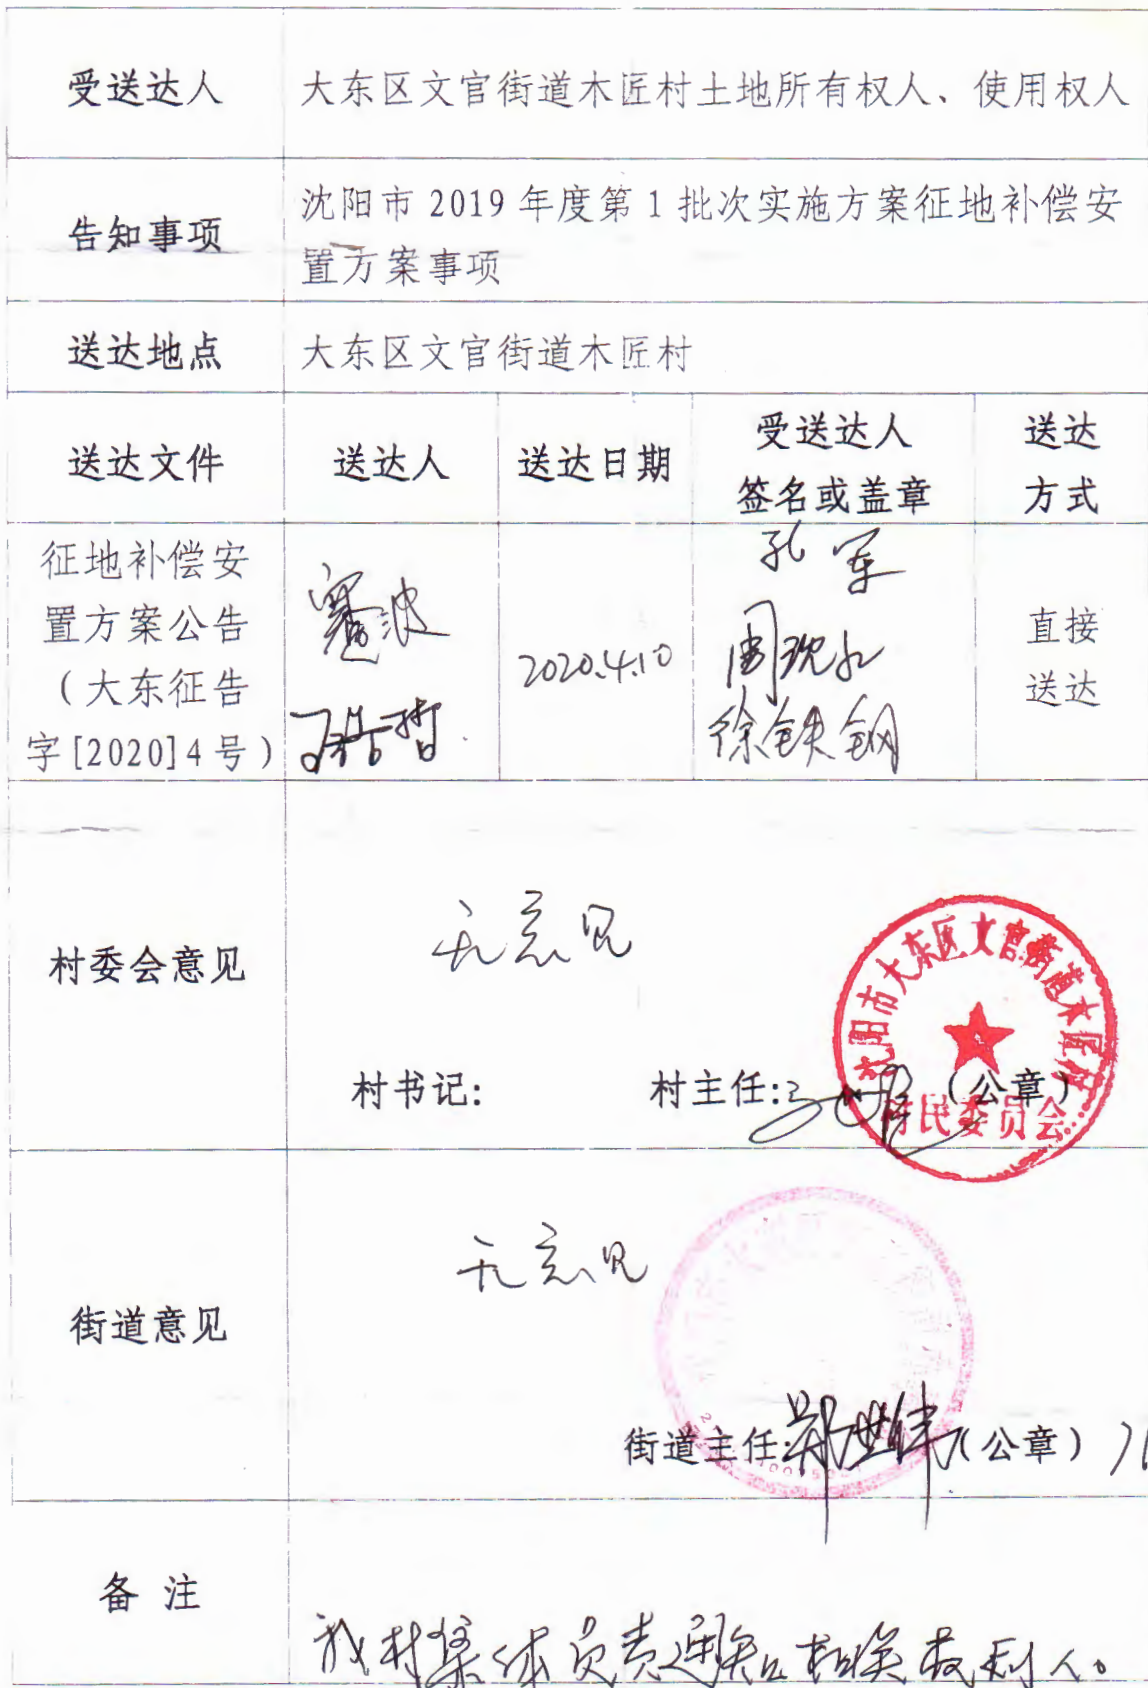 受送达人
大东区文官街道木匠村土地所有权人、使用权人
告知事项
沈阳市 2019 年度第 1 批次实施方案征地补偿安
置方案事项
送达地点
大东区文官街道木匠村
送达文件
送达人
送达日期
受送达人
签名或盖章
送达
方式
征地补偿安
置方案公告
（大东征告
字[2020]4 号）
2020.4.10
孔军
徐铁钢
直接
送达
村委会意见
无意见
沈阳市大东区文官街道木匠村
村民委员会
村书记:
村主任:
（公章）
街道意见
无意见
街道主任:郑世伟（公章）
备 注
我村集体负责通知相关权利人。